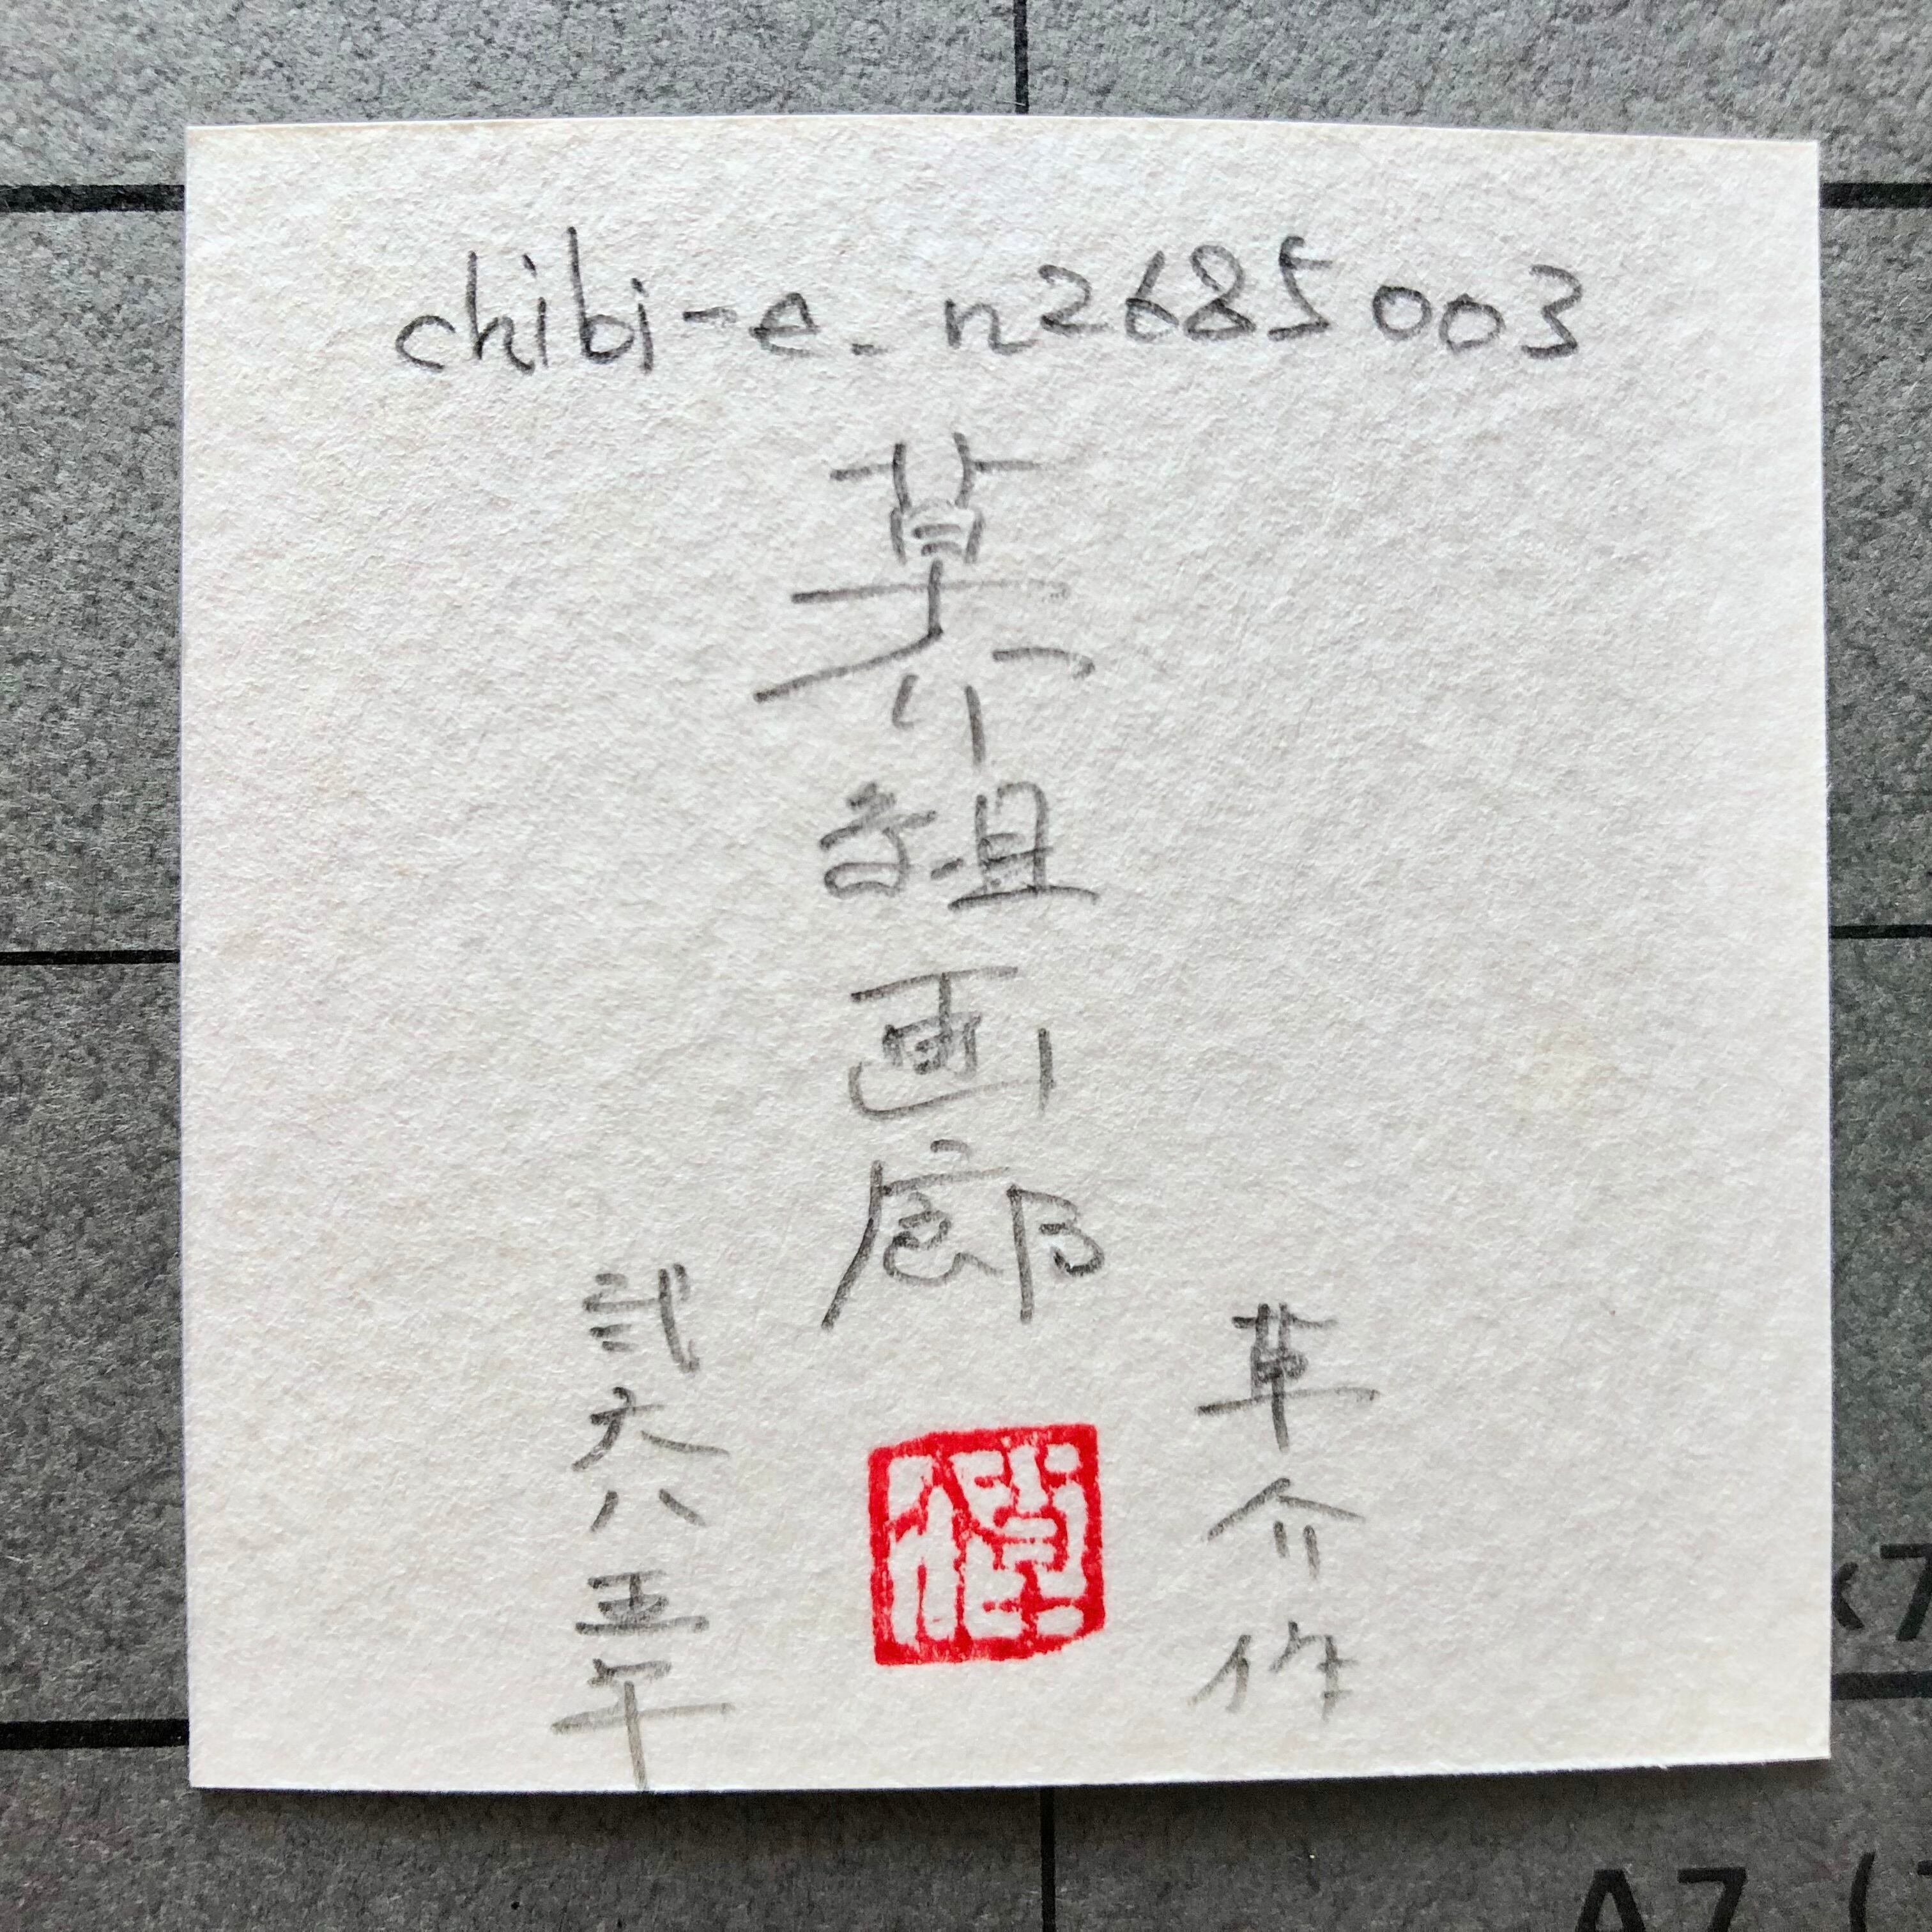 chibi-e_n2685003
草介組画廊
草介作
弐六八五年
A7 (